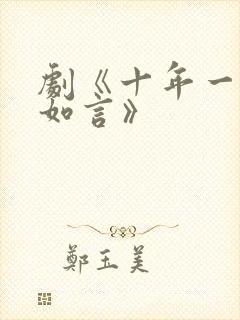 劇《十年一
如言》
鄭玉美